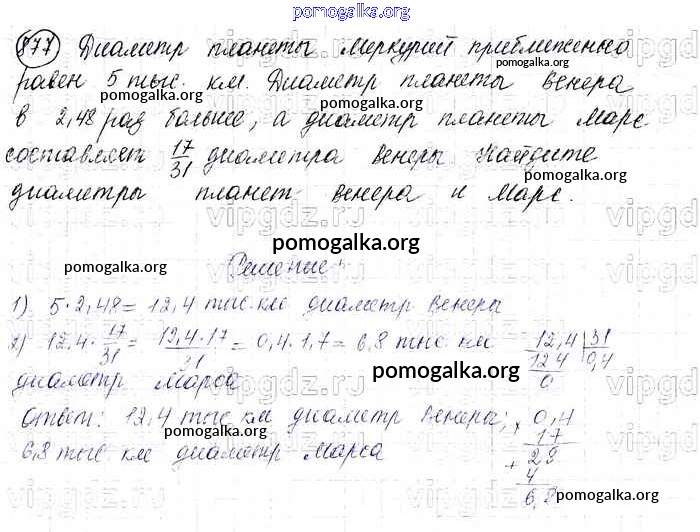 pomogalka.org
877 Диаметр планеты Меркурий приближенно
pomogalka.org
равен 5 тыс. км. Диаметр планеты Венера
pomogalka.org pomogalka.org
в 2,48 раз больше, а диаметр планеты Марс
составляет 17/31 диаметра Венеры Найдите
pomogalka.org
диаметры планет Венера и Марс.
vipgdz.ru vipgdz.ru vipgdz.ru vipgd
pomogalka.org
Решение:
pomogalka.org
1) 5·2,48=12,4 тыс.км диаметр Венеры
2) 12,4·17/31=12,4·17/31=0,4·1,7=6,8 тыс км
12,4 31
12 4 0,4
0
pomogalka.org
диаметр Марса
vipgdz.ru vipgdz.ru vipgdz.ru vipgd
Ответ: 12,4 тыс км диаметр Венеры;
pomogalka.org
6,8 тыс. км диаметр Марса
× 0,4
17
+ 28
4
6,8
pomogalka.org
pomogalka.org
vipgdz.ru vipgdz.ru vipgdz.ru vipgd